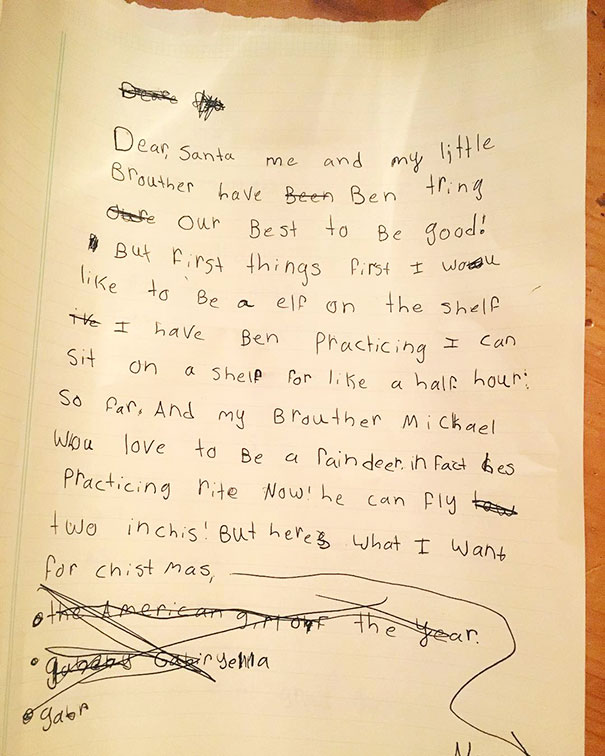 Dear,
Dear, Santa me and my little
Brouther have Been Ben tring
Our Best to Be good!
But first things first I wou
like to Be a elf on the shelf
I've I have Ben Practicing I can
Sit on a shelf for like a half hour:
So far, And my Brouther Mickael
Wou love to Be a raindeer. in fact hes
Practicing rite Now! he can fly
two inchis! But here's what I want
for chistmas,
the American girl of the Year.
Gabiryella
gabr
N